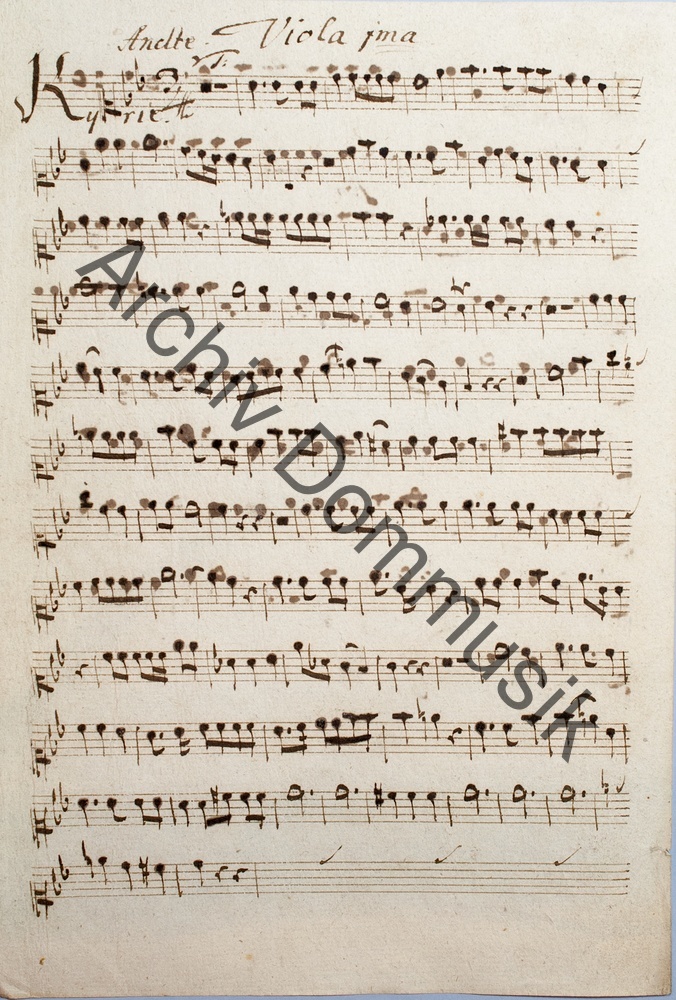 Andte. Viola pma
T:
Kyrie
Archiv Dommusik